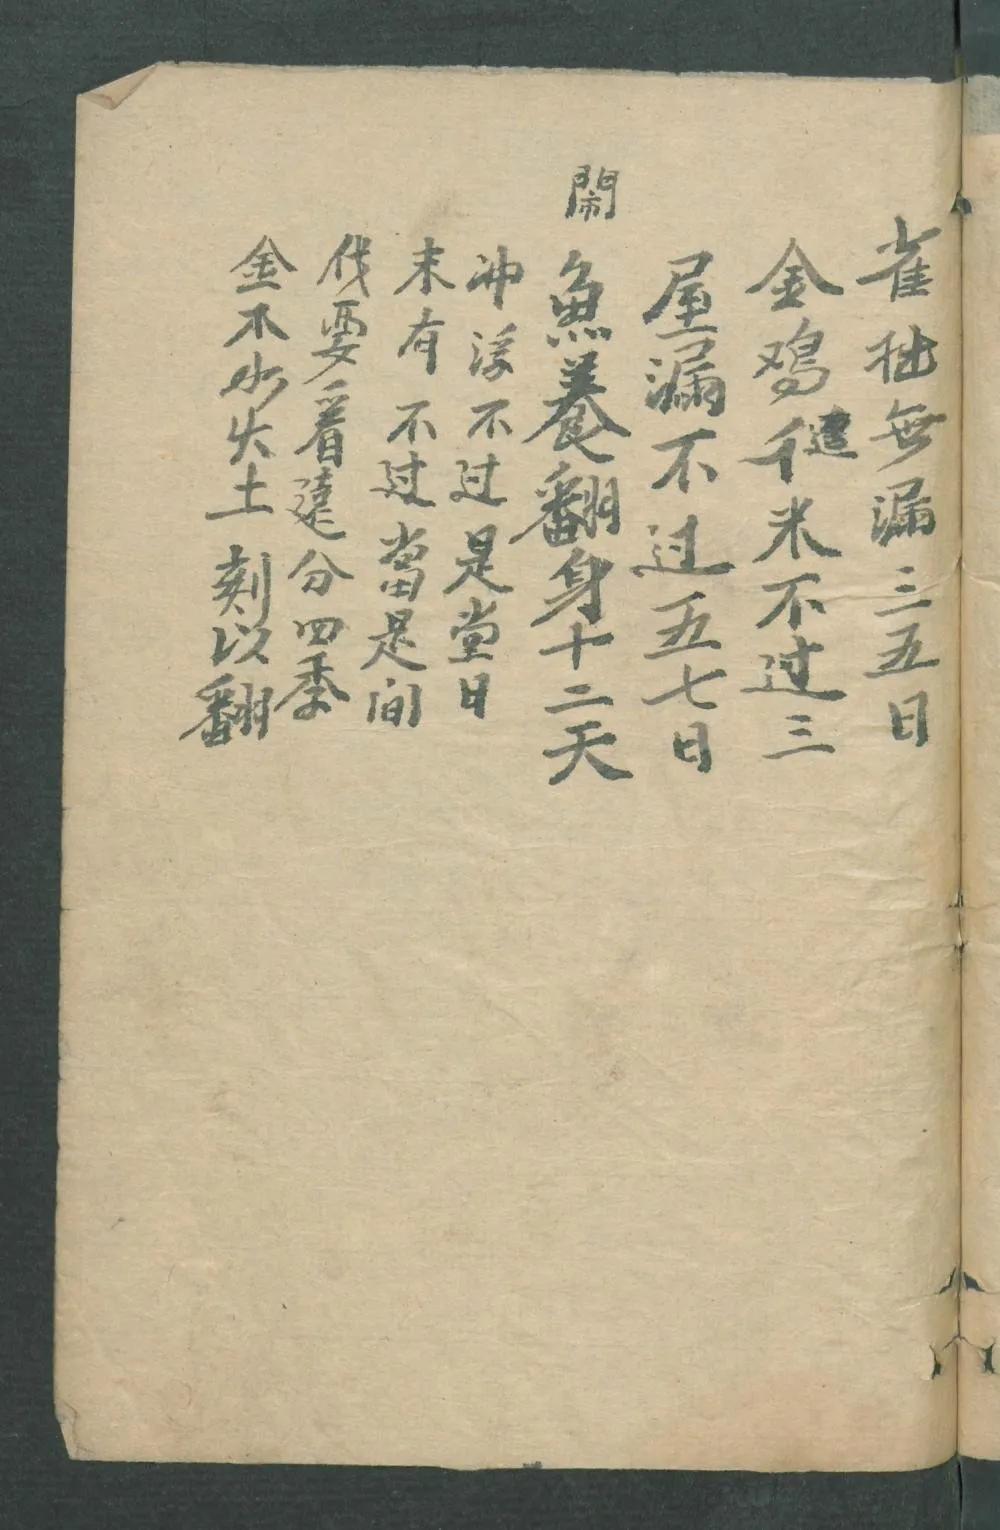 雀拙無漏三五日
金鸡千米不过三
屋漏不过五七日
鬧
魚養翻身十二天
冲浮不过是堂日
末有不过當是间
伐要看遠分四季
金木水火土刻以翻